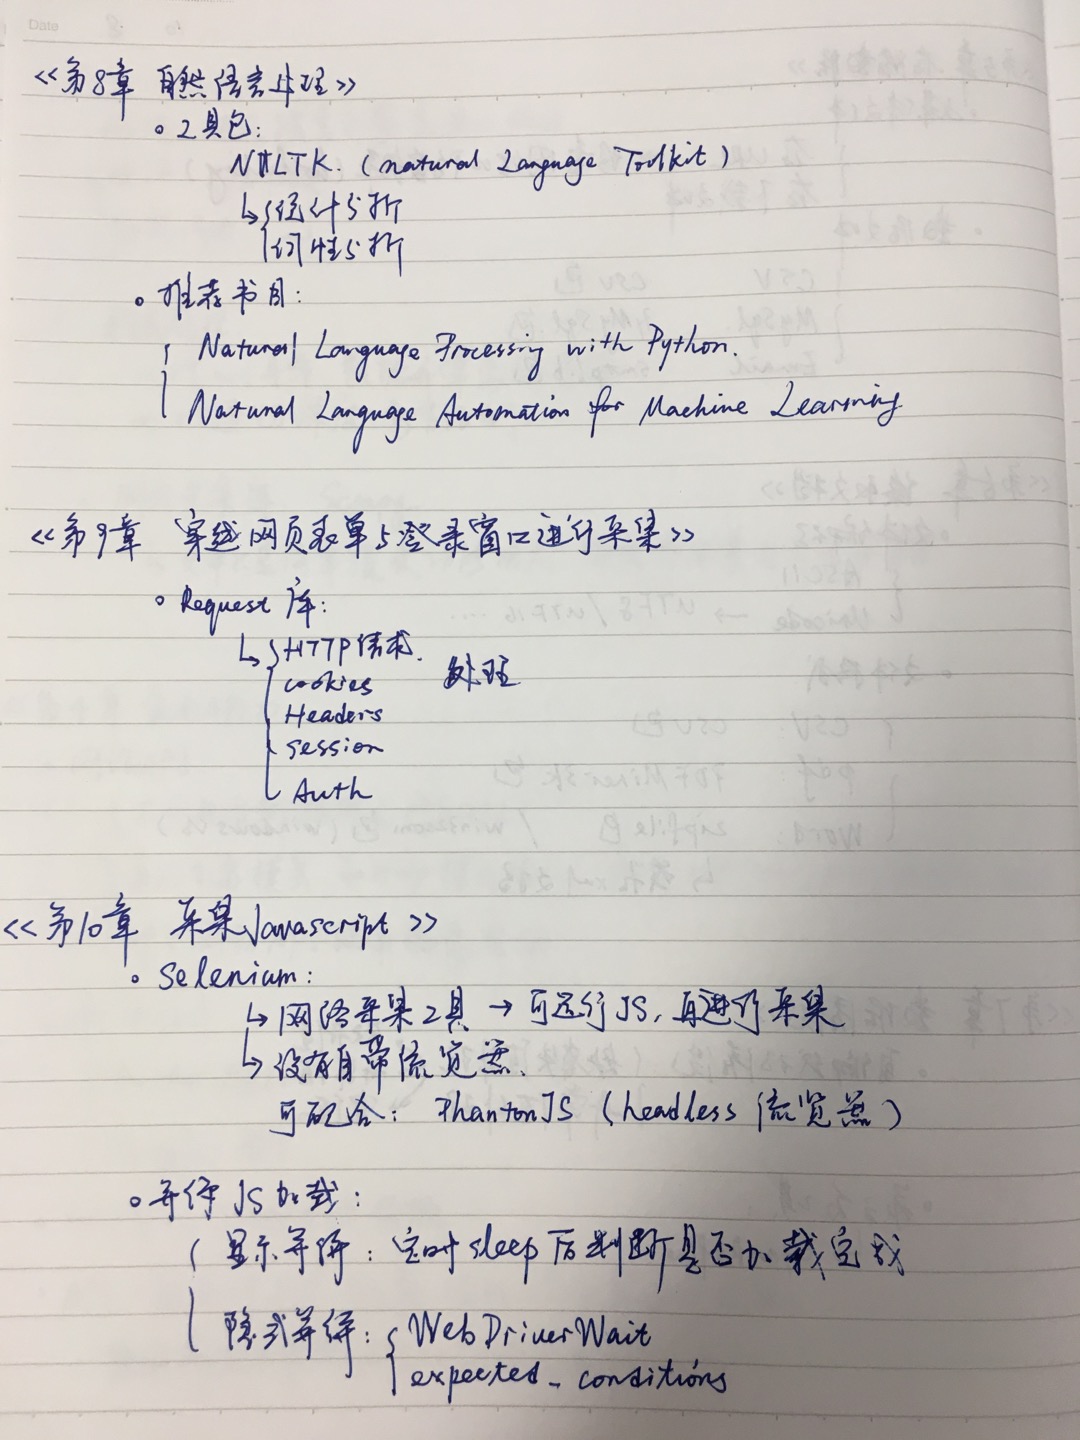 Date
<<第8章 自然语言处理>>
。工具包:
NLTK. (natural Language Toolkit)
↳{统计分析
词性分析
。推荐书目:
Natural Language Processing with Python.
Natural Language Automation for Machine Learning
<<第9章 穿越网页表单与登录窗口进行采集>>
。Request 库:
↳{HTTP请求. 处理
cookies
Headers
session
Auth
<<第10章 采集Javascript>>
。Selenium:
↳网络采集工具 → 可运行JS, 再进行采集
↳没有自带浏览器.
可配合: PhantonJS (headless 浏览器)
。等待JS加载:
{显示等待: 定时sleep后判断是否加载完成
隐式等待: {WebDriverWait
expected_conditions